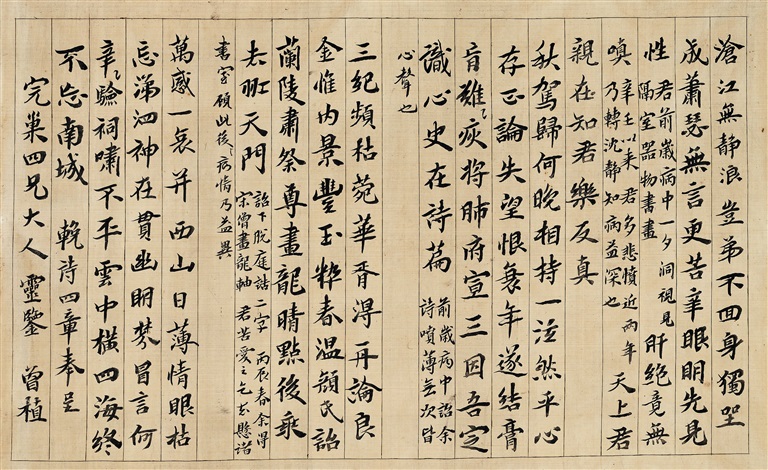 滄江無靜浪豈弟不回身獨坐
成蕭瑟無言更苦辛眼明先見
性 君前歲病中一夕洞視見
隔室器物書畫 肝絕竟無
嗔 辛壬以來君多悲憤近兩年
乃轉沈靜知病益深也 天上君
親在知君樂反真
秋駕歸何晚相持一泫然平心
存正論失望恨衰年遂結膏
肓雖疢將肺府宣三因吾定
識心史在詩篇 前歲病中詒余
詩噴薄無次皆
心聲也
三紀頻枯菀華胥得再論良
金惟內景豐玉粹春溫顏氏詒
蘭陵肅祭尊畫龍睛點後乘
去天門 詒下脫庭誥二字 丙辰春余得
宋畫龍軸 君苦愛之乞懸諸
書室顧此後病情乃益異
萬感一哀并西山日薄情眼枯
忘涕泗神在貫幽明棼冒言何
辛驗祠嘯不平雲中橫四海終
不忘南城 輓詩四章奉呈
完巢四兄大人靈鑒 曾植